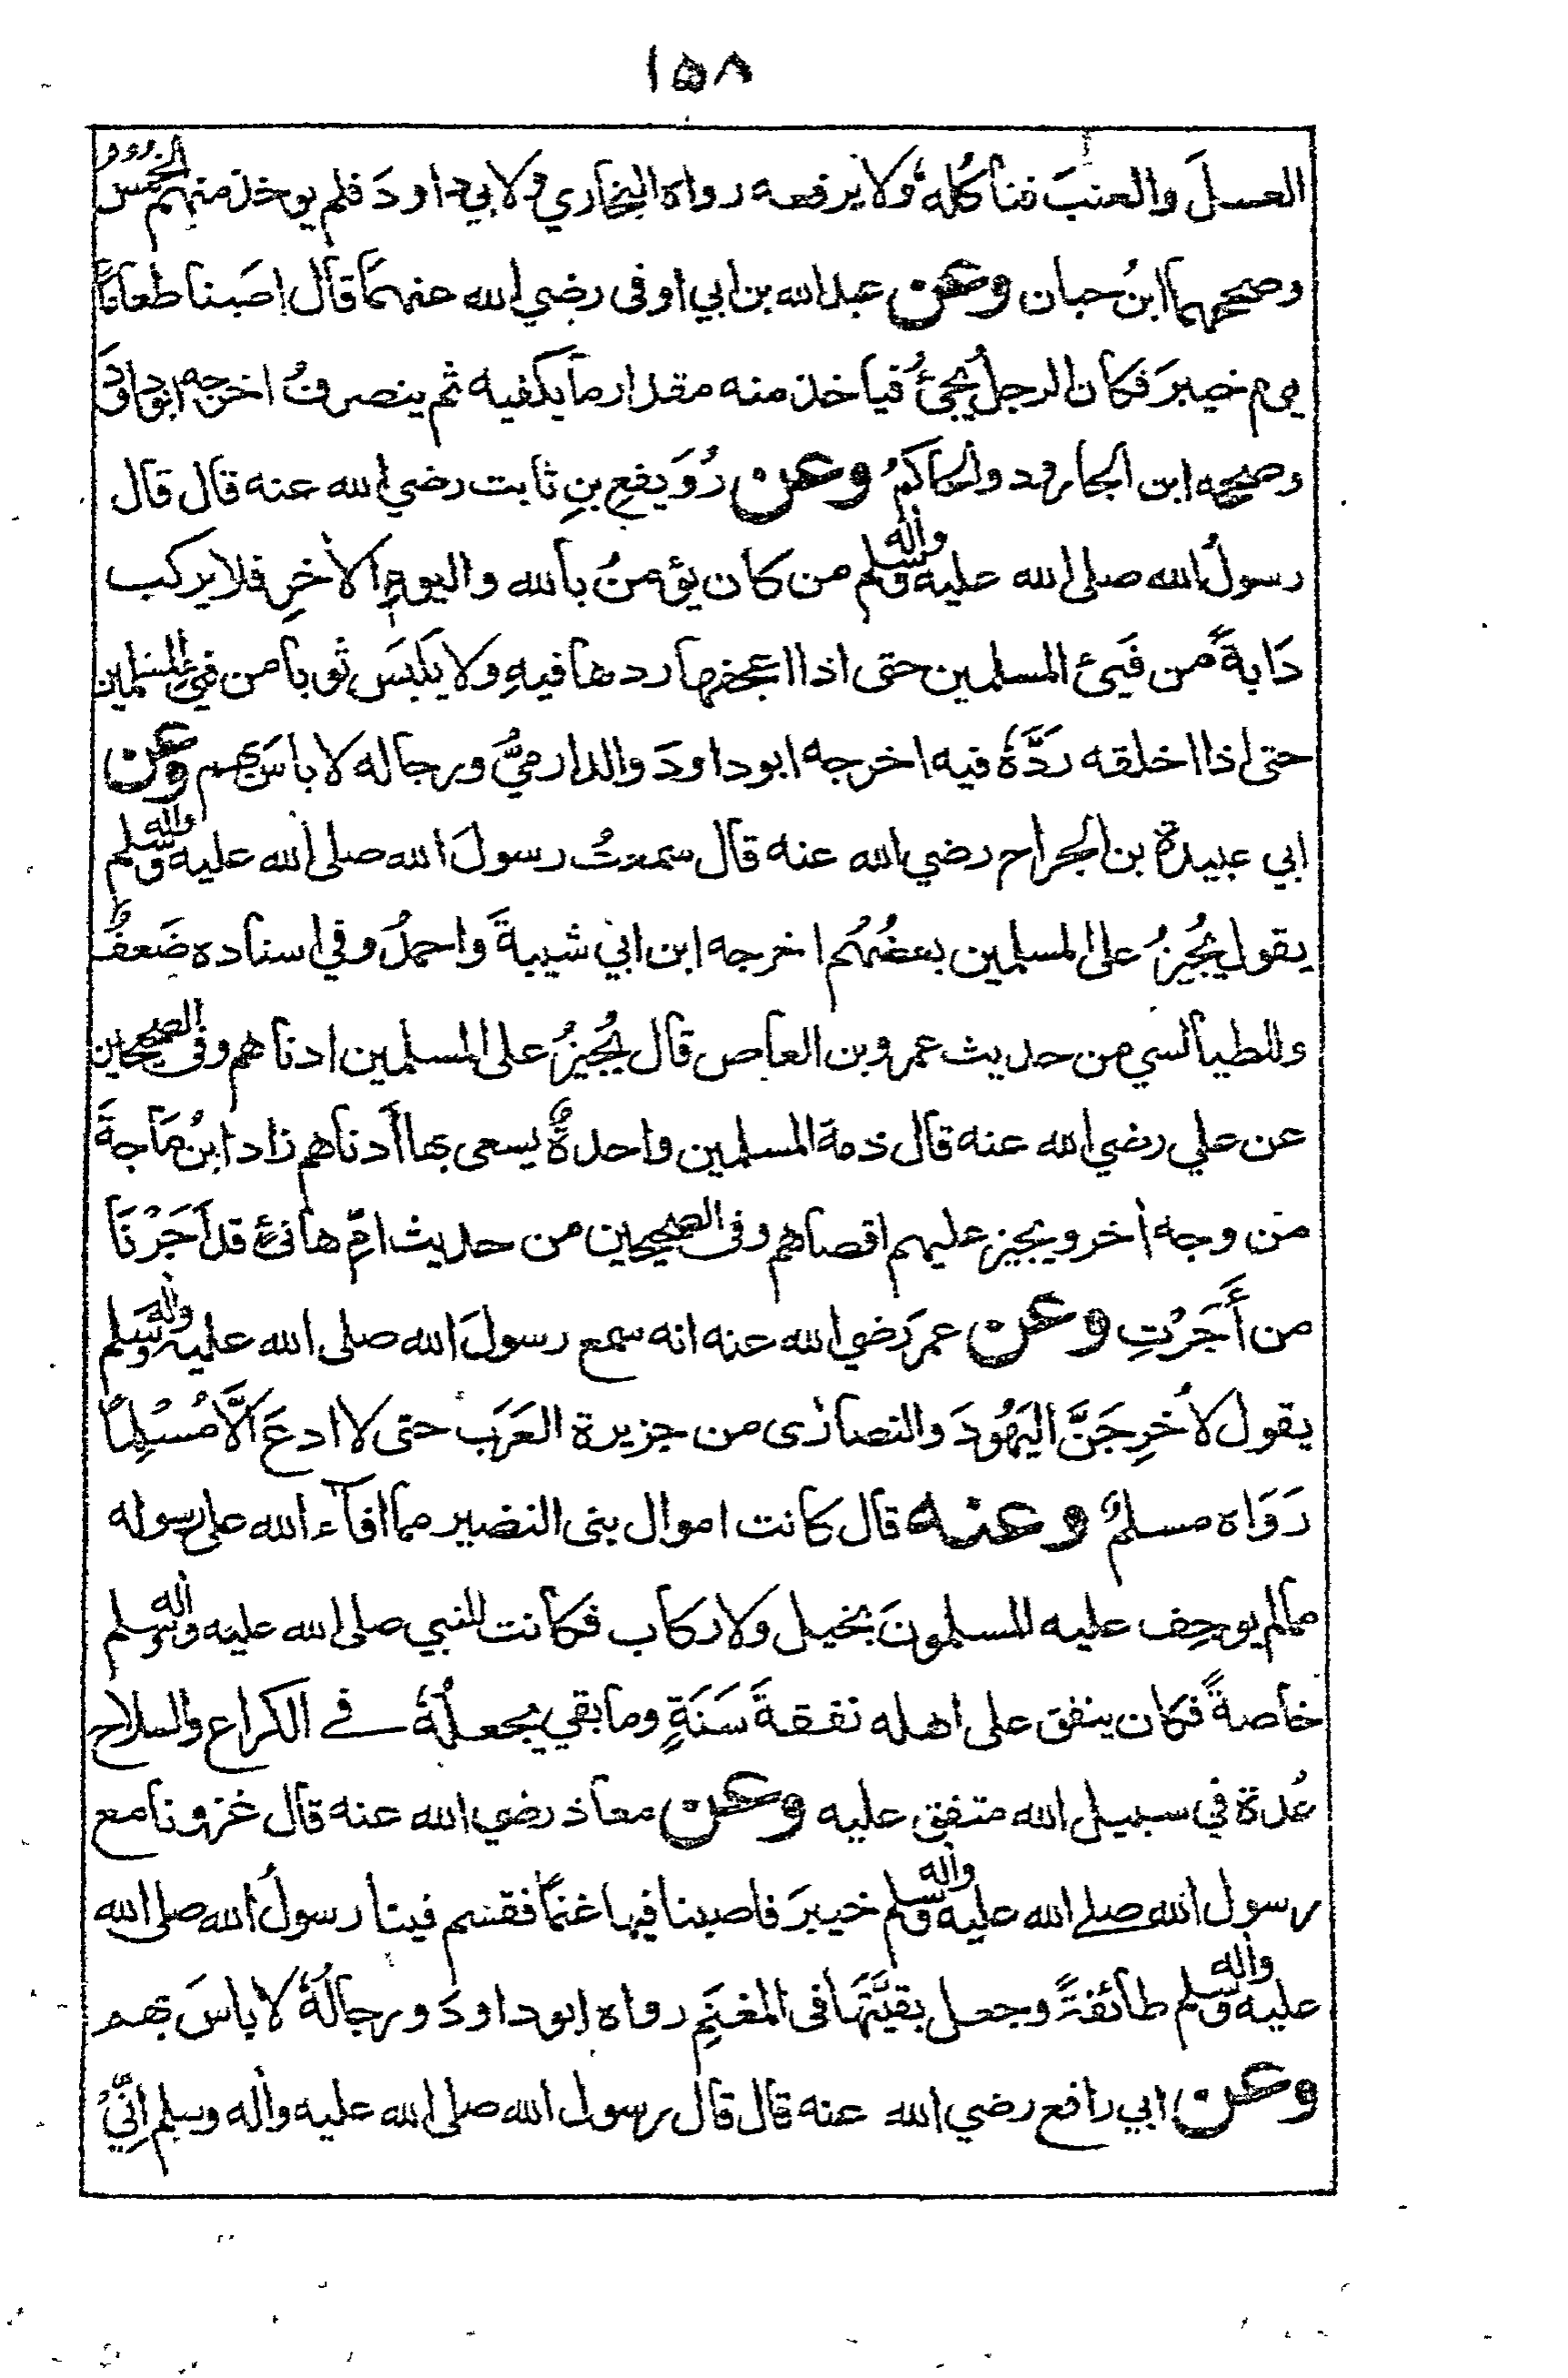 ١٥٨
العسلَ والعنبَ فناكُله ولا يرفعه رواه البخاري ولابي داودَ فلم يوخذ منهم الخمس
وصححهما ابنُ حبان وعن عبد الله بن ابي اوفى رضي الله عنهما قال اصَبنا طعامًا
يوم خيبرَ فكان الرجلُ يجئُ فياخذ منه مقدار ما يكفيه ثم ينصرفُ اخرجه ابو داودَ
وصححه ابن الجارود والحاكمُ وعن رُوَيفعِ بنِ ثابت رضي الله عنه قال قال
رسولُ الله صلى الله عليه واله وسلم من كان يؤمنُ بالله واليومِ الاخرِ فلا يركب
دَابةً من فَيئ المسلمين حتى اذا اعجفها ردها فيهِ ولا يلبَسَ ثوبا من فيئ المسلمين
حتى اذا اخلقه رَدَّهُ فيه اخرجه ابو داودَ والدارميُّ ورجاله لا باسَ بهم وعن
ابي عبيدة بن الجراح رضي الله عنه قال سمعتُ رسولَ الله صلى الله عليه واله وسلم
يقول يُجيرُ على المسلمين بعضُهُم اخرجه ابن ابي شيبةَ واحمدُ وفي اسناده ضَعفٌ
وللطيالسي من حديث عمرو بن العاص قال يُجيرُ على المسلمين ادناهم وفى الصحيحين
عن علي رضي الله عنه قال ذمة المسلمين واحدةٌ يسعى بها أدناهم زاد ابنُ مَاجةَ
من وجه أخر ويجير عليهم اقصاهم وفى الصحيحين من حديث امِّ هانئ قد اَجَرْنَا
من أَجَرْتِ وعن عمرَ رَضي الله عنه انه سمع رسولَ الله صلى الله عليه واله وسَلم
يقول لأُخرِجَنَّ اليَهُودَ والنصارٰى من جزيرة العَرَبِ حتى لا ادعَ الَّا مُسْلِمًا
رَوَاه مسلمٌ وعنه قال كانت اموال بنى النضير مما افآء الله على رسوله
مما لم يوجِف عليه المسلمونَ بخيل ولا ركاب فكانت للنبي صلى الله عليه واله وسلم
خاصةً فكان ينفق على اهله نفقةَ سَنَةٍ وما بقي يجعلُهُ في الكراع والسلاح
عُدة في سبيل الله متفق عليه وعن معاذ رضي الله عنه قال غزونا مع
رسول الله صلى الله عليه واله وسلم خيبرَ فاصبنا فيها غنمًا فقسم فينا رسولُ الله صلى الله
عليه واله وسلم طائفةً وجعل بقيَّتَهَا فى المغنَمِ رواه ابو داودَ ورجالُهُ لا باسَ بهم
وعن ابي رافع رضي الله عنه قال قال رسول الله صلى الله عليه واله وسلم اِنّيْ